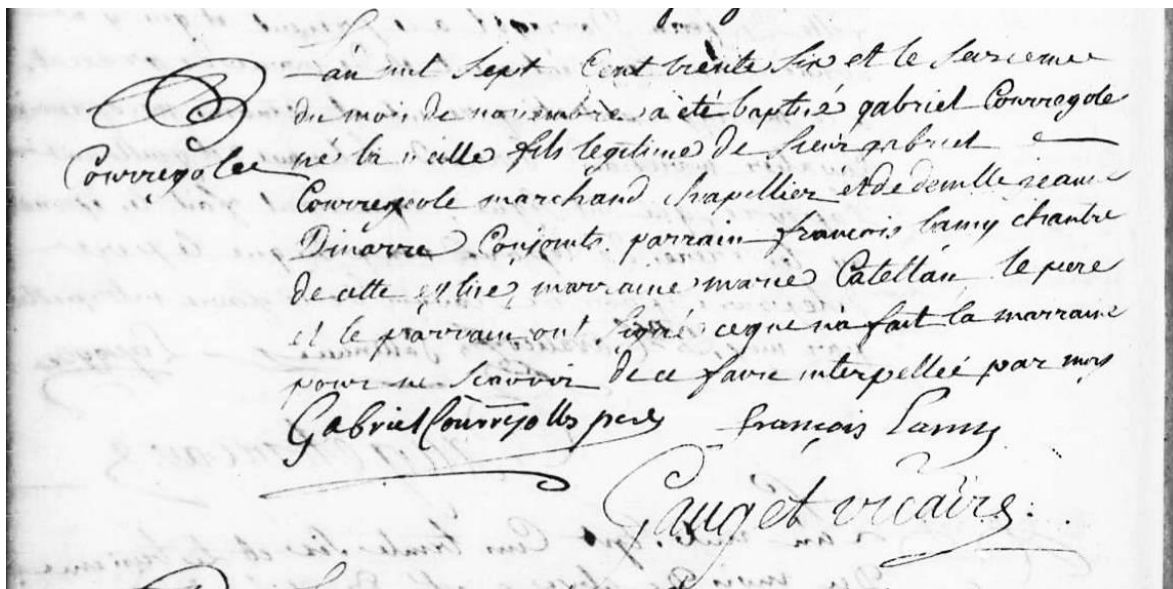 Courregole
L'an mil sept cent trente six et le seisieme
du mois de novembre a été baptisé gabriel Courregole
né la veille fils legitime de sieur gabriel
Courregole marchand chapellier et de demlle jeanne
Dinarre Conjoints parrain françois Lamy chantre
de cette eglise marraine marie Catellan le pere
et le parrain ont signé ce que n'a fait la marraine
pour ne scavoir de ce faire interpellée par moy
Gabriel Courrejolles pere françois Lamy
vicaire